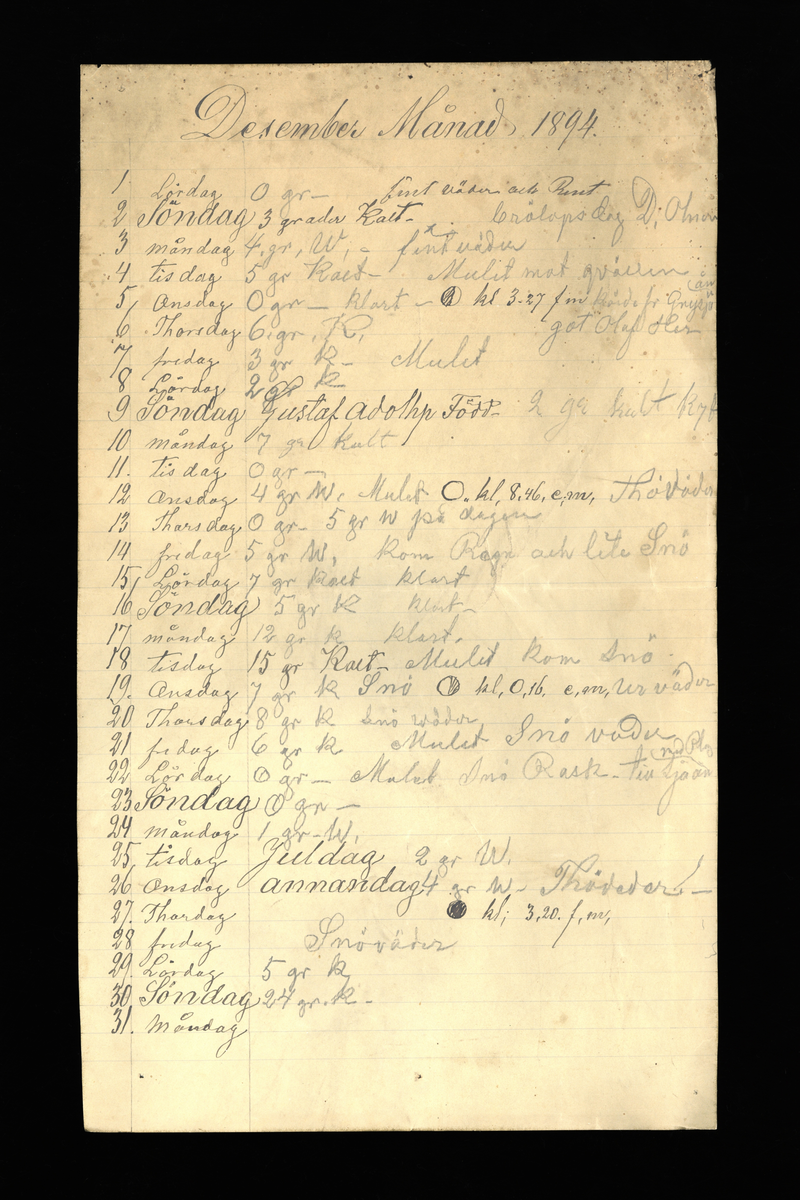 Desember Månad, 1894.
1 Lördag 0 gr — fint väder och Rent
2 Söndag 3 grader Kalt - brölops dag D; Olnas
3 måndag 4, gr, W, - fint väder
4 tisdag 5 gr Kalt - Mulit mot qvällen
5, Onsdag 0 gr — klart - kl 3-27 f m
6 Thorsdag 6, gr, K,
7 fredag 3 gr K - Mulit
8 Lördag 2 gr K
9 Söndag Gustaf Adolhp Född - 2 gr kalt
10 måndag 7 gr kalt
11. tisdag 0 gr —
12 Onsdag 4 gr W, Mulet O. kl, 8,46, e,m, Thöväder
13 Thorsdag 0 gr - 5 gr W på dagen
14 fredag 5 gr W, kom Regn och lite Snö
15, Lördag 7 gr kalt klart
16 Söndag 5 gr K klart -
17 måndag 12 gr k klart,
18 tisdag 15 gr Kalt - Mulit kom snö -
19. Onsdag 7 gr K Snö kl, 0,16, e,m, Urväder
20 Thorsdag 8 gr K snö wäder,
21 fredag 6 gr K Mulet Snö väder
22 Lördag 0 gr — Mulet Snö Rask -
23 Söndag 0 gr —
24 måndag 1 gr - W,
25, tisdag Juldag 2 gr W,
26 Onsdag annandag 4 gr W -
27. Thordag kl; 3,20. f, m,
28 fredag Snöväder
29. Lördag 5 gr K
30. Söndag 24 gr. K -
31. Måndag